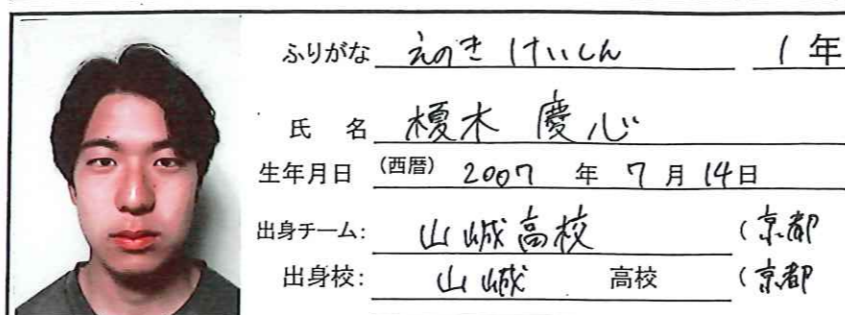 ふりがな えのき けいしん 1年
氏 名 榎木 慶心
生年月日 (西暦) 2007 年 7 月 14日
出身チーム: 山城高校 (京都
出身校: 山城 高校 (京都